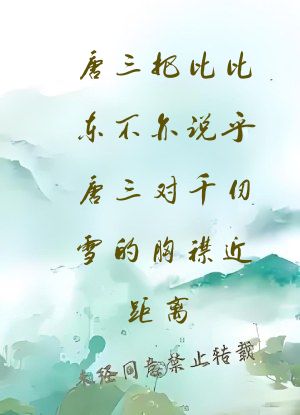 唐三把比比
东不尔说乎
唐三对千仞
雪的胸襟近
距离
未经同意禁止转载